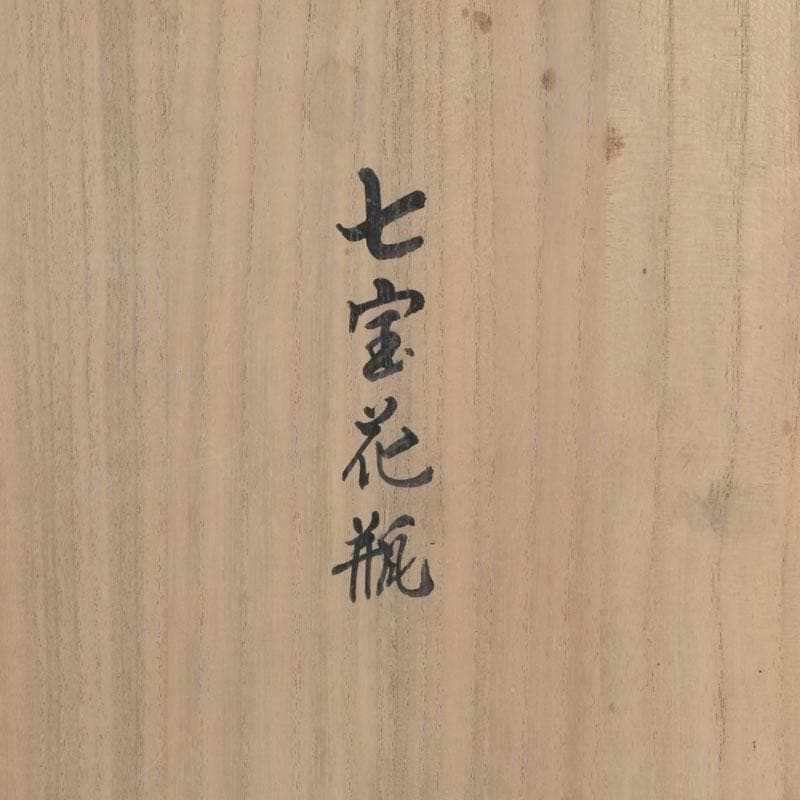 七宝花瓶